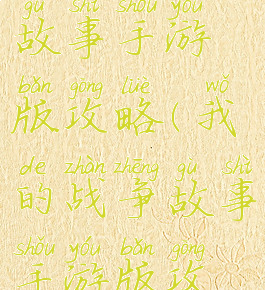 gù shì shǒu yóu
故事手游
bǎn gōng lüè wǒ
版攻略(我
de zhàn zhēng gù shì
的战争故事
shǒu yóu bǎn gōng
手游版攻